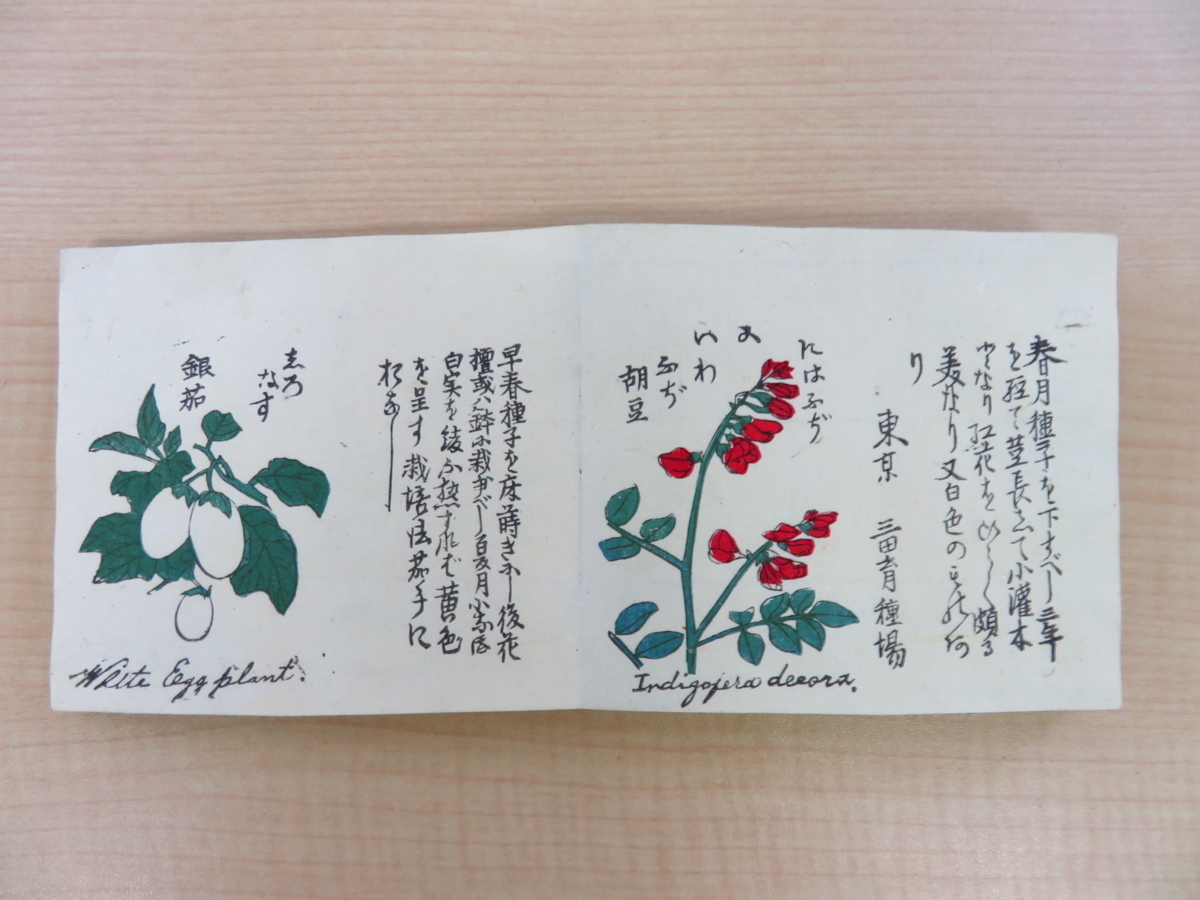 春月種子を下すべし三年
を経て莖長して小灌木
となり紅花をひらく頗る
美なり又白色のものあ
り
東京 三田育種場
にはふぢ
又
いわ
ふぢ
胡豆
Indigofera decora.
早春種子を床に蒔き而し後花
壇或ハ鉢に栽ゆべし夏月
白実を綴ふ熟すれば黄色
を呈す栽培法茄子に
おなし
志ろ
なす
銀茄
White Egg plant.